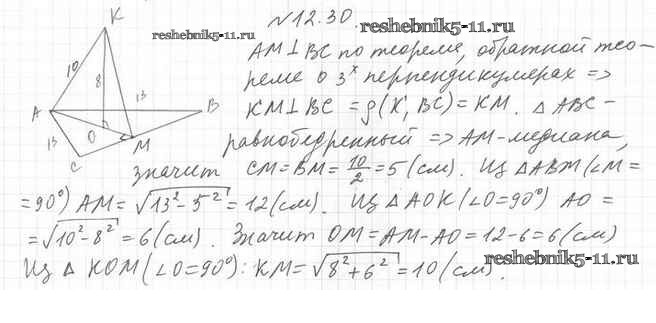 №12.30.
reshebnik5-11.ru
K
AM⊥BC по теореме, обратной тео-
10
реме о 3ˣ перпендикулерах =>
8
13
KM⊥BC = ρ(K, BC) = KM. △ABC-
A
B
O
равнобедренный => AM-медиана,
13
M
C
значит CM=BM= 10/2 =5 (см). Из △ABM(∠M=
=90°) AM= √13²-5² = 12(см). Из △AOK(∠O=90°) AO=
=√10²-8² =6(см). Значит OM=AM-AO=12-6=6(см)
Из △KOM(∠O=90°): KM=√8²+6² =10 (см).
reshebnik5-11.ru